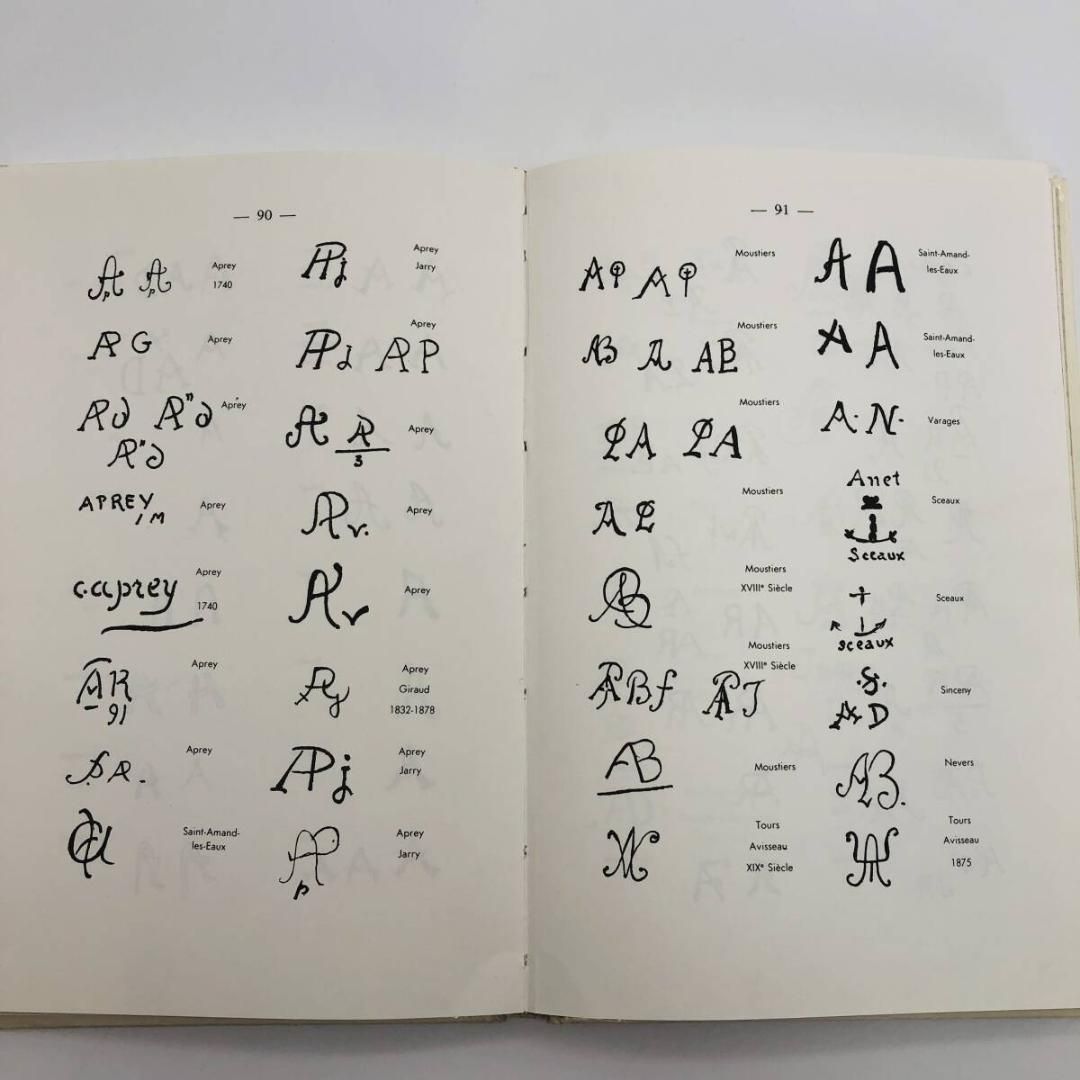 — 90 —
Aprey
1740
AR G
Aprey
Aprey
APREY
Aprey
c.aprey
Aprey
1740
AR
91
Aprey
Aprey
Saint-Amand-
les-Eaux
APj
Aprey
Jarry
Aprey
3
Aprey
APv.
Aprey
Av
Aprey
Aprey
Giraud
1832-1878
APj
Aprey
Jarry
AP
p
Aprey
Jarry
— 91 —
Moustiers
AB AB
Moustiers
PA PA
Moustiers
Moustiers
Moustiers
XVIIIe Siècle
Moustiers
XVIIIe Siècle
AB
Moustiers
Tours
Avisseau
XIXe Siècle
A A
Saint-Amand-
les-Eaux
A A
Saint-Amand-
les-Eaux
A. N.
Varages
Anet
Sceaux
Sceaux
Sceaux
sceaux
.S.
Sinceny
AB.
Nevers
Tours
Avisseau
1875